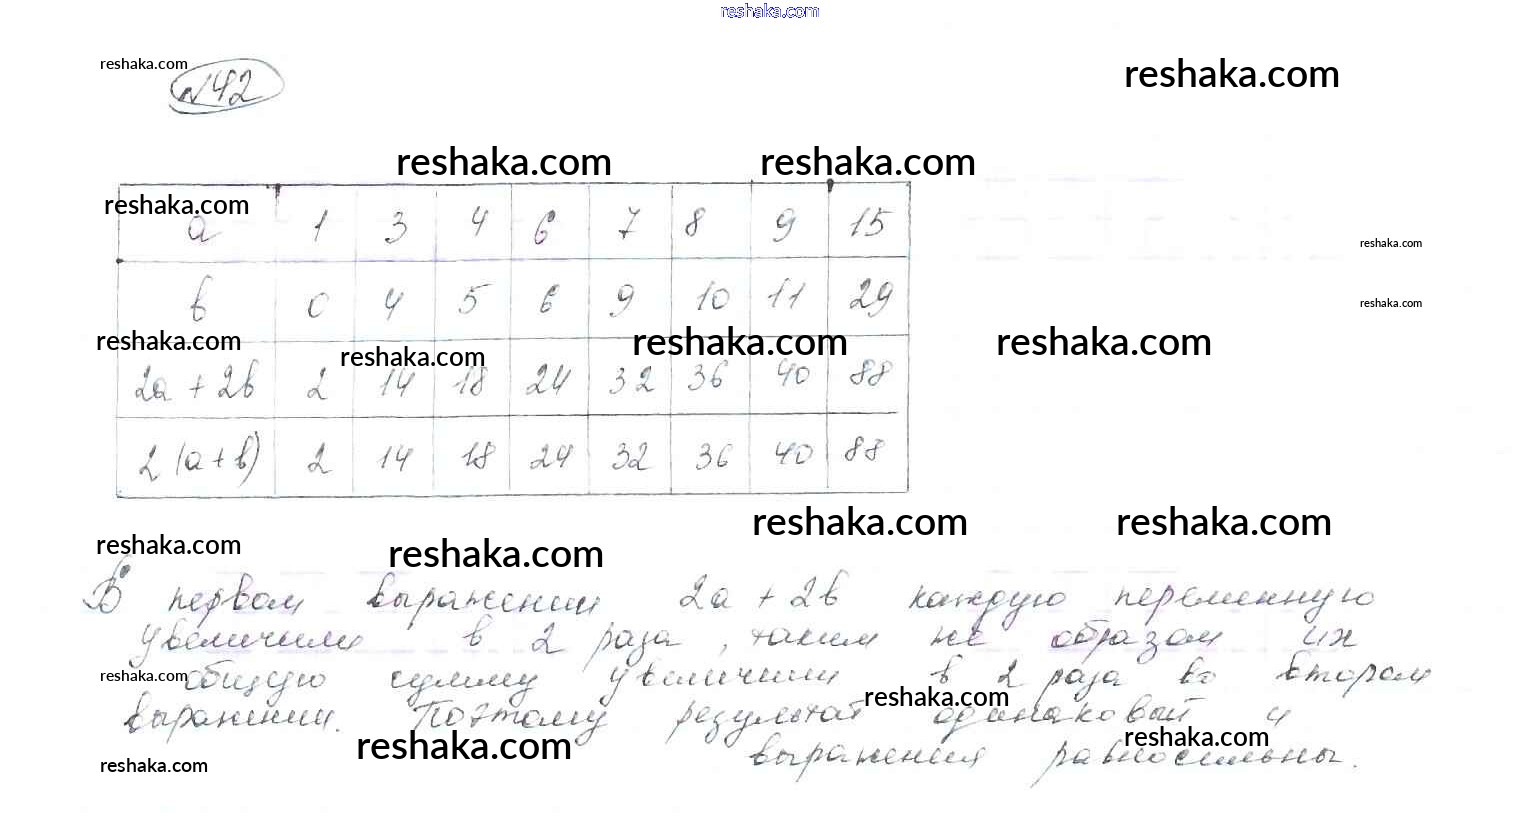 reshaka.com
reshaka.com
№42
reshaka.com
reshaka.com reshaka.com
reshaka.com
а 1 3 4 6 7 8 9 15
reshaka.com
в 0 4 5 6 9 10 11 29
reshaka.com
reshaka.com reshaka.com reshaka.com reshaka.com
2а + 2в 2 14 18 24 32 36 40 88
2(а+в) 2 14 18 24 32 36 40 88
reshaka.com reshaka.com
reshaka.com reshaka.com
В первом выражении 2а + 2в каждую переменную
увеличили в 2 раза, таким же образом их
reshaka.com
общую сумму увеличили в 2 раза во втором
reshaka.com
выражении. Поэтому результат одинаковый и
reshaka.com reshaka.com
выражения равносильны.
reshaka.com